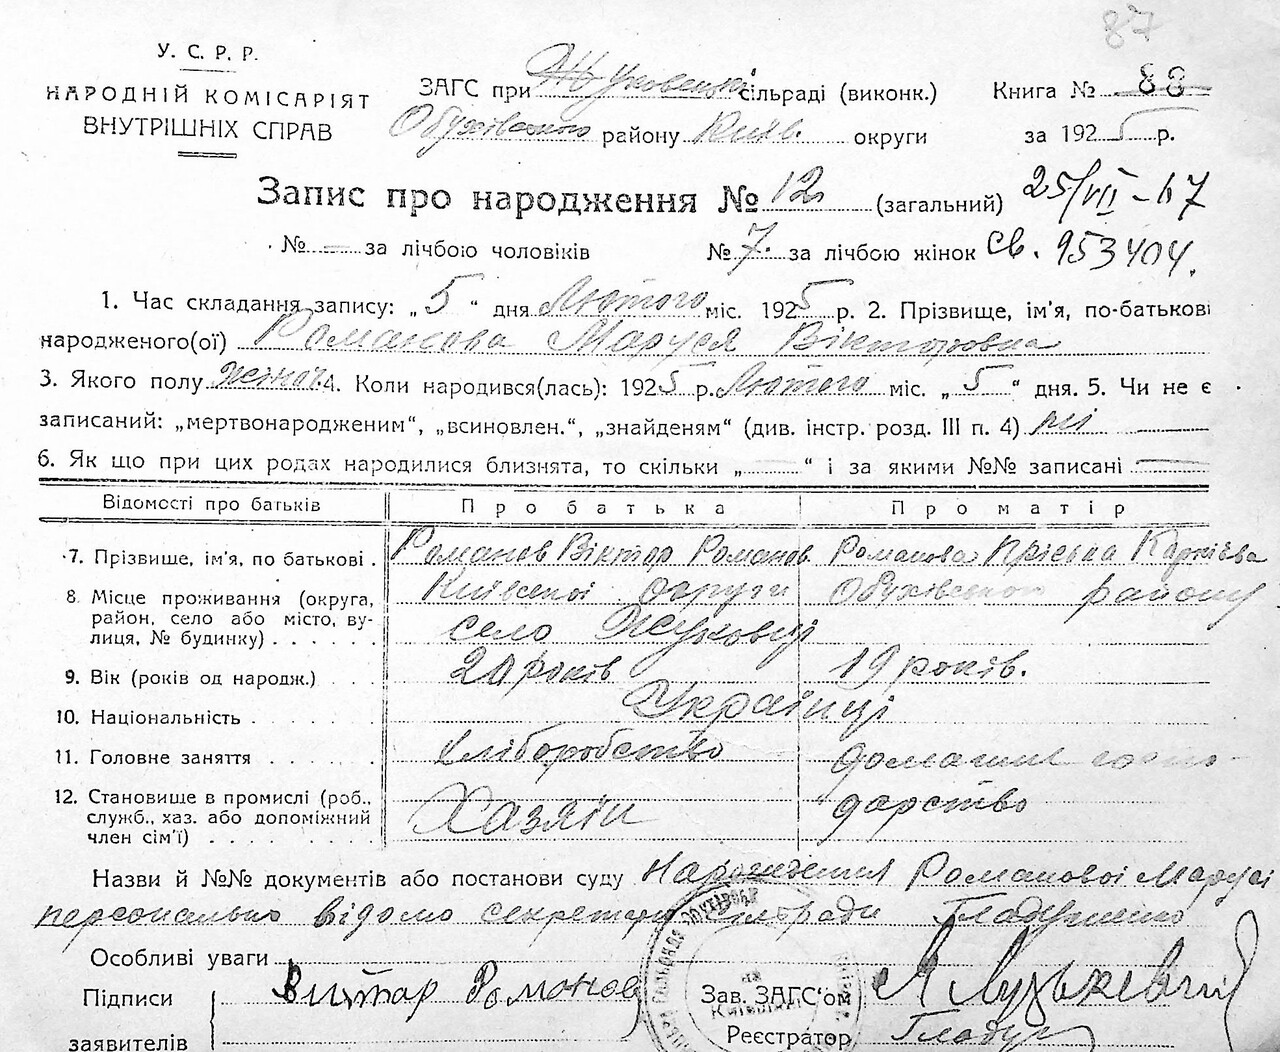 87
У. С. Р. Р.
НАРОДНІЙ КОМІСАРІЯТ
ВНУТРІШНІХ СПРАВ
ЗАГС при сільраді (виконк.)
Обухівського району Київ. округи
Книга № 88
за 1925 р.
Запис про народження № 12 (загальний) 25/VII - 67
№ — за лічбою чоловіків № 7. за лічбою жінок св. 953404.
1. Час складання запису: „ 5 “ дня Лютого міс. 1925 р. 2. Прізвище, ім'я, по-батькові
народженого(ої) Романова Маруся Вікторовна
3. Якого полу жіноч. 4. Коли народився(лась): 1925 р. Лютого міс. „ 5 “ дня. 5. Чи не є
записаний: „мертвонародженим“, „всиновлен.“, „знайденям“ (див. інстр. розд. III п. 4) ні —
6. Як що при цих родах народилися близнята, то скільки „ — “ і за якими №№ записані —
Відомості про батьків Про батька Про матір
7. Прізвище, ім'я, по батькові . Романов Віктор Романов Романова
8. Місце проживання (округа, район, село або місто, вулиця, № будинку) . . . . . Київської округи Обухівського району
село
9. Вік (років од народж.) . . . 20 років 19 років.
10. Національність . . . . . . Українці
11. Головне заняття . . . . . . хліборобство домашнє госпо-
12. Становище в промислі (роб., служб., хаз. або допоміжний член сім'ї) . . . . . . . . Хазяїн дарство
Назви й №№ документів або постанови суду Народження Романової Марусі
персонально відомо секретарю сільради
Особливі уваги
Підписи
заявителів
Виктар Романов
Зав. ЗАГС'ом
Реєстратор